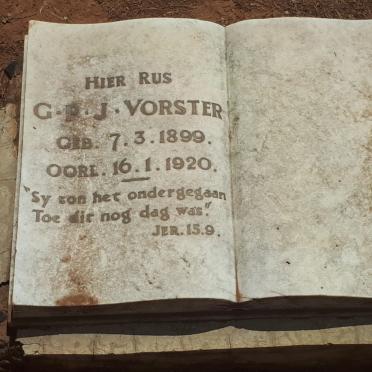 HIER RUS
G.P.J. VORSTER
GEB. 7.3.1899.
OORL. 16.1.1920.
"Sy son het ondergegaan
Toe dit nog dag was."
JER. 15.9.